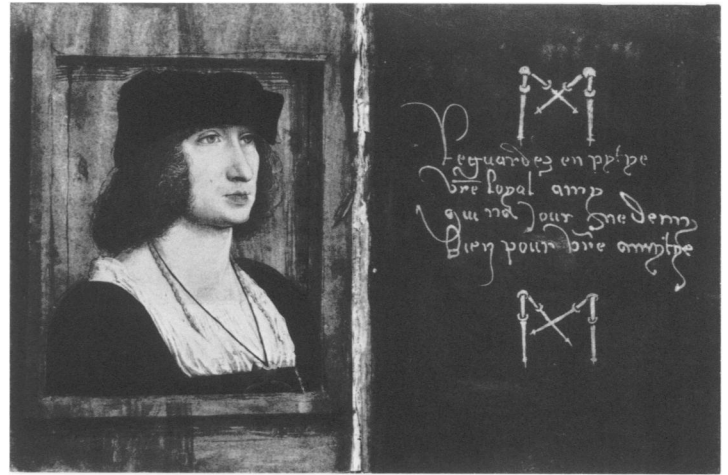 M
Reguardez en pytye
vr̄e loyal amy
qui na jour ne demy
bien pour vr̄e amytye
M